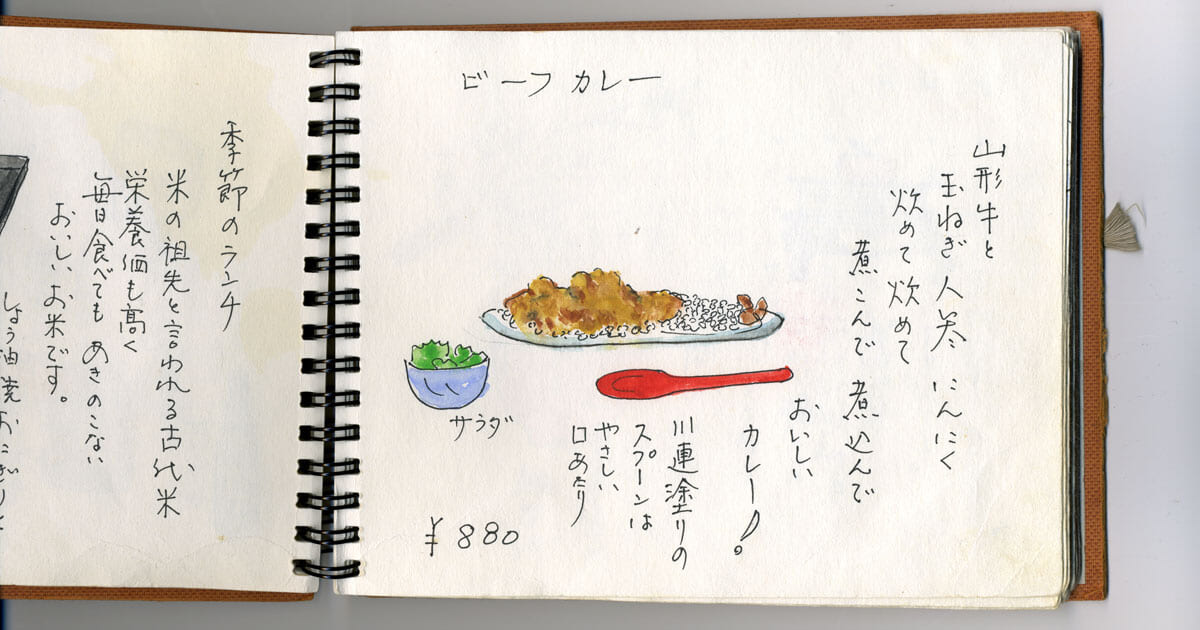 ビーフカレー
山形牛と
玉ねぎ 人参 にんにく
炊めて 炊めて
煮こんで 煮込んで
おいしい
カレー!
川連塗りの
スプーンは
やさしい
口あたり
サラダ
¥880
季節のランチ
米の祖先と言われる古代米
栄養価も高く
毎日食べても あきのこない
おいしいお米です。
しょう油焼おにぎりと